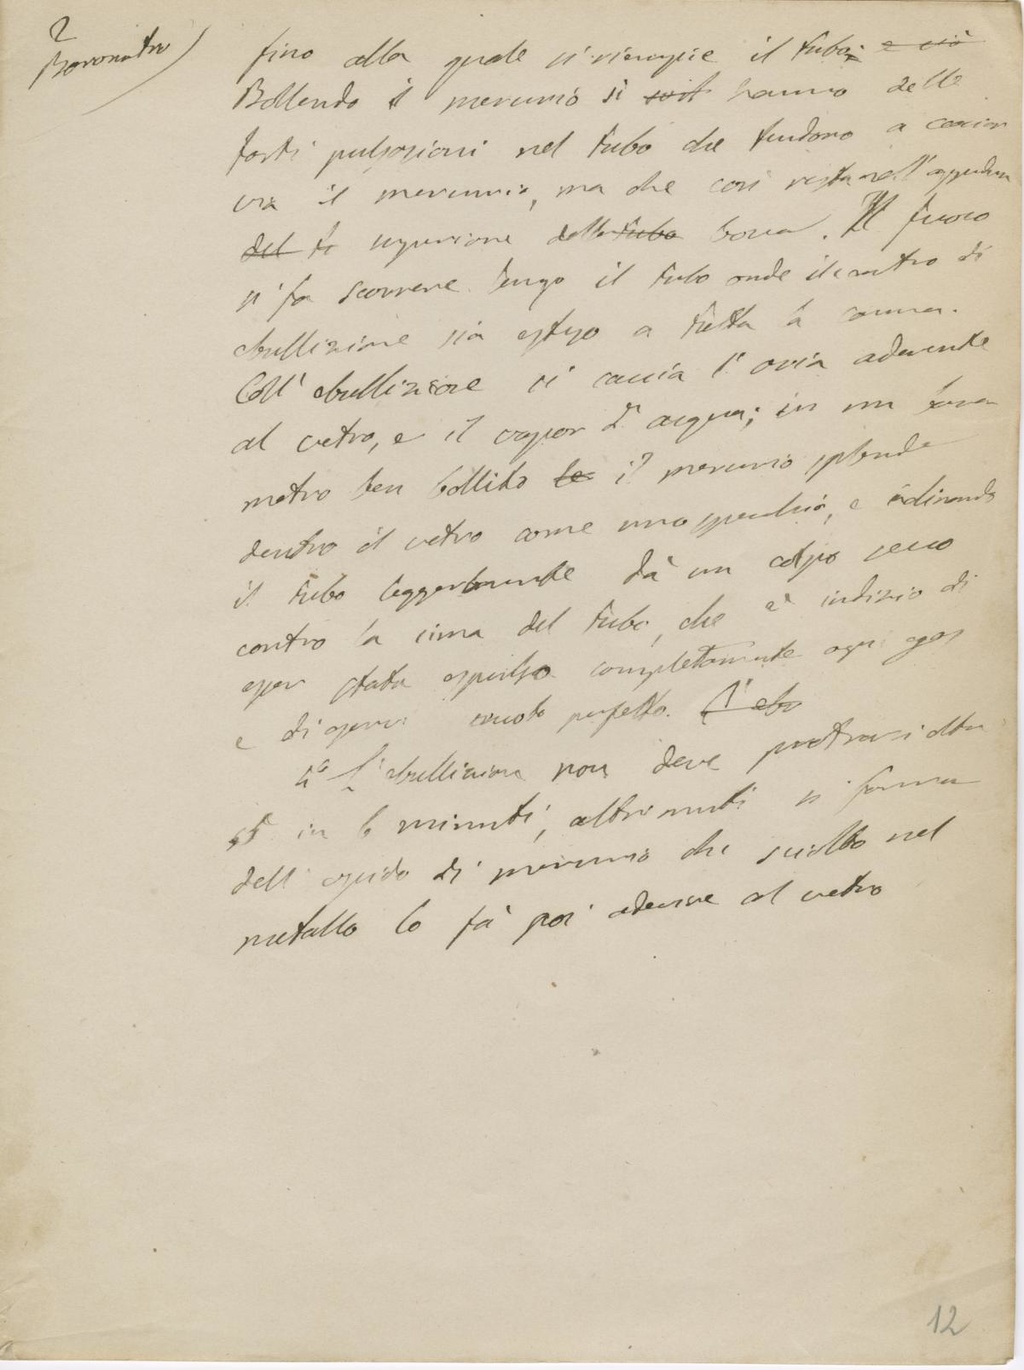 2
Barometro
fino alla quale si riempie il tubo; e ciò
Bollendo il mercurio si hanno delle
forti pulsazioni nel tubo che tendono a cacciar
via il mercurio, ma che così resta nell'appendice
del superiore della tubo bocca. Il fuoco
si fa scorrere lungo il tubo onde il centro di
ebullizione sia esteso a tutta la canna.
Coll' ebullizione si caccia l' aria aderente
al vetro, e il vapor d' acqua; in un baro
metro ben bollito le il mercurio splende
dentro il vetro come uno specchio, e inclinando
il tubo leggermente dà un colpo secco
contro la cima del tubo, che è indizio di
esser stato espulso completamente ogni gas
e di esservi vuoto perfetto. L' ebu
4° L' ebullizione non deve protrarsi oltre
5 in 6 minuti, altrimenti si forma
dell' ossido di mercurio che sciolto nel
metallo lo fà poi aderire al vetro
12